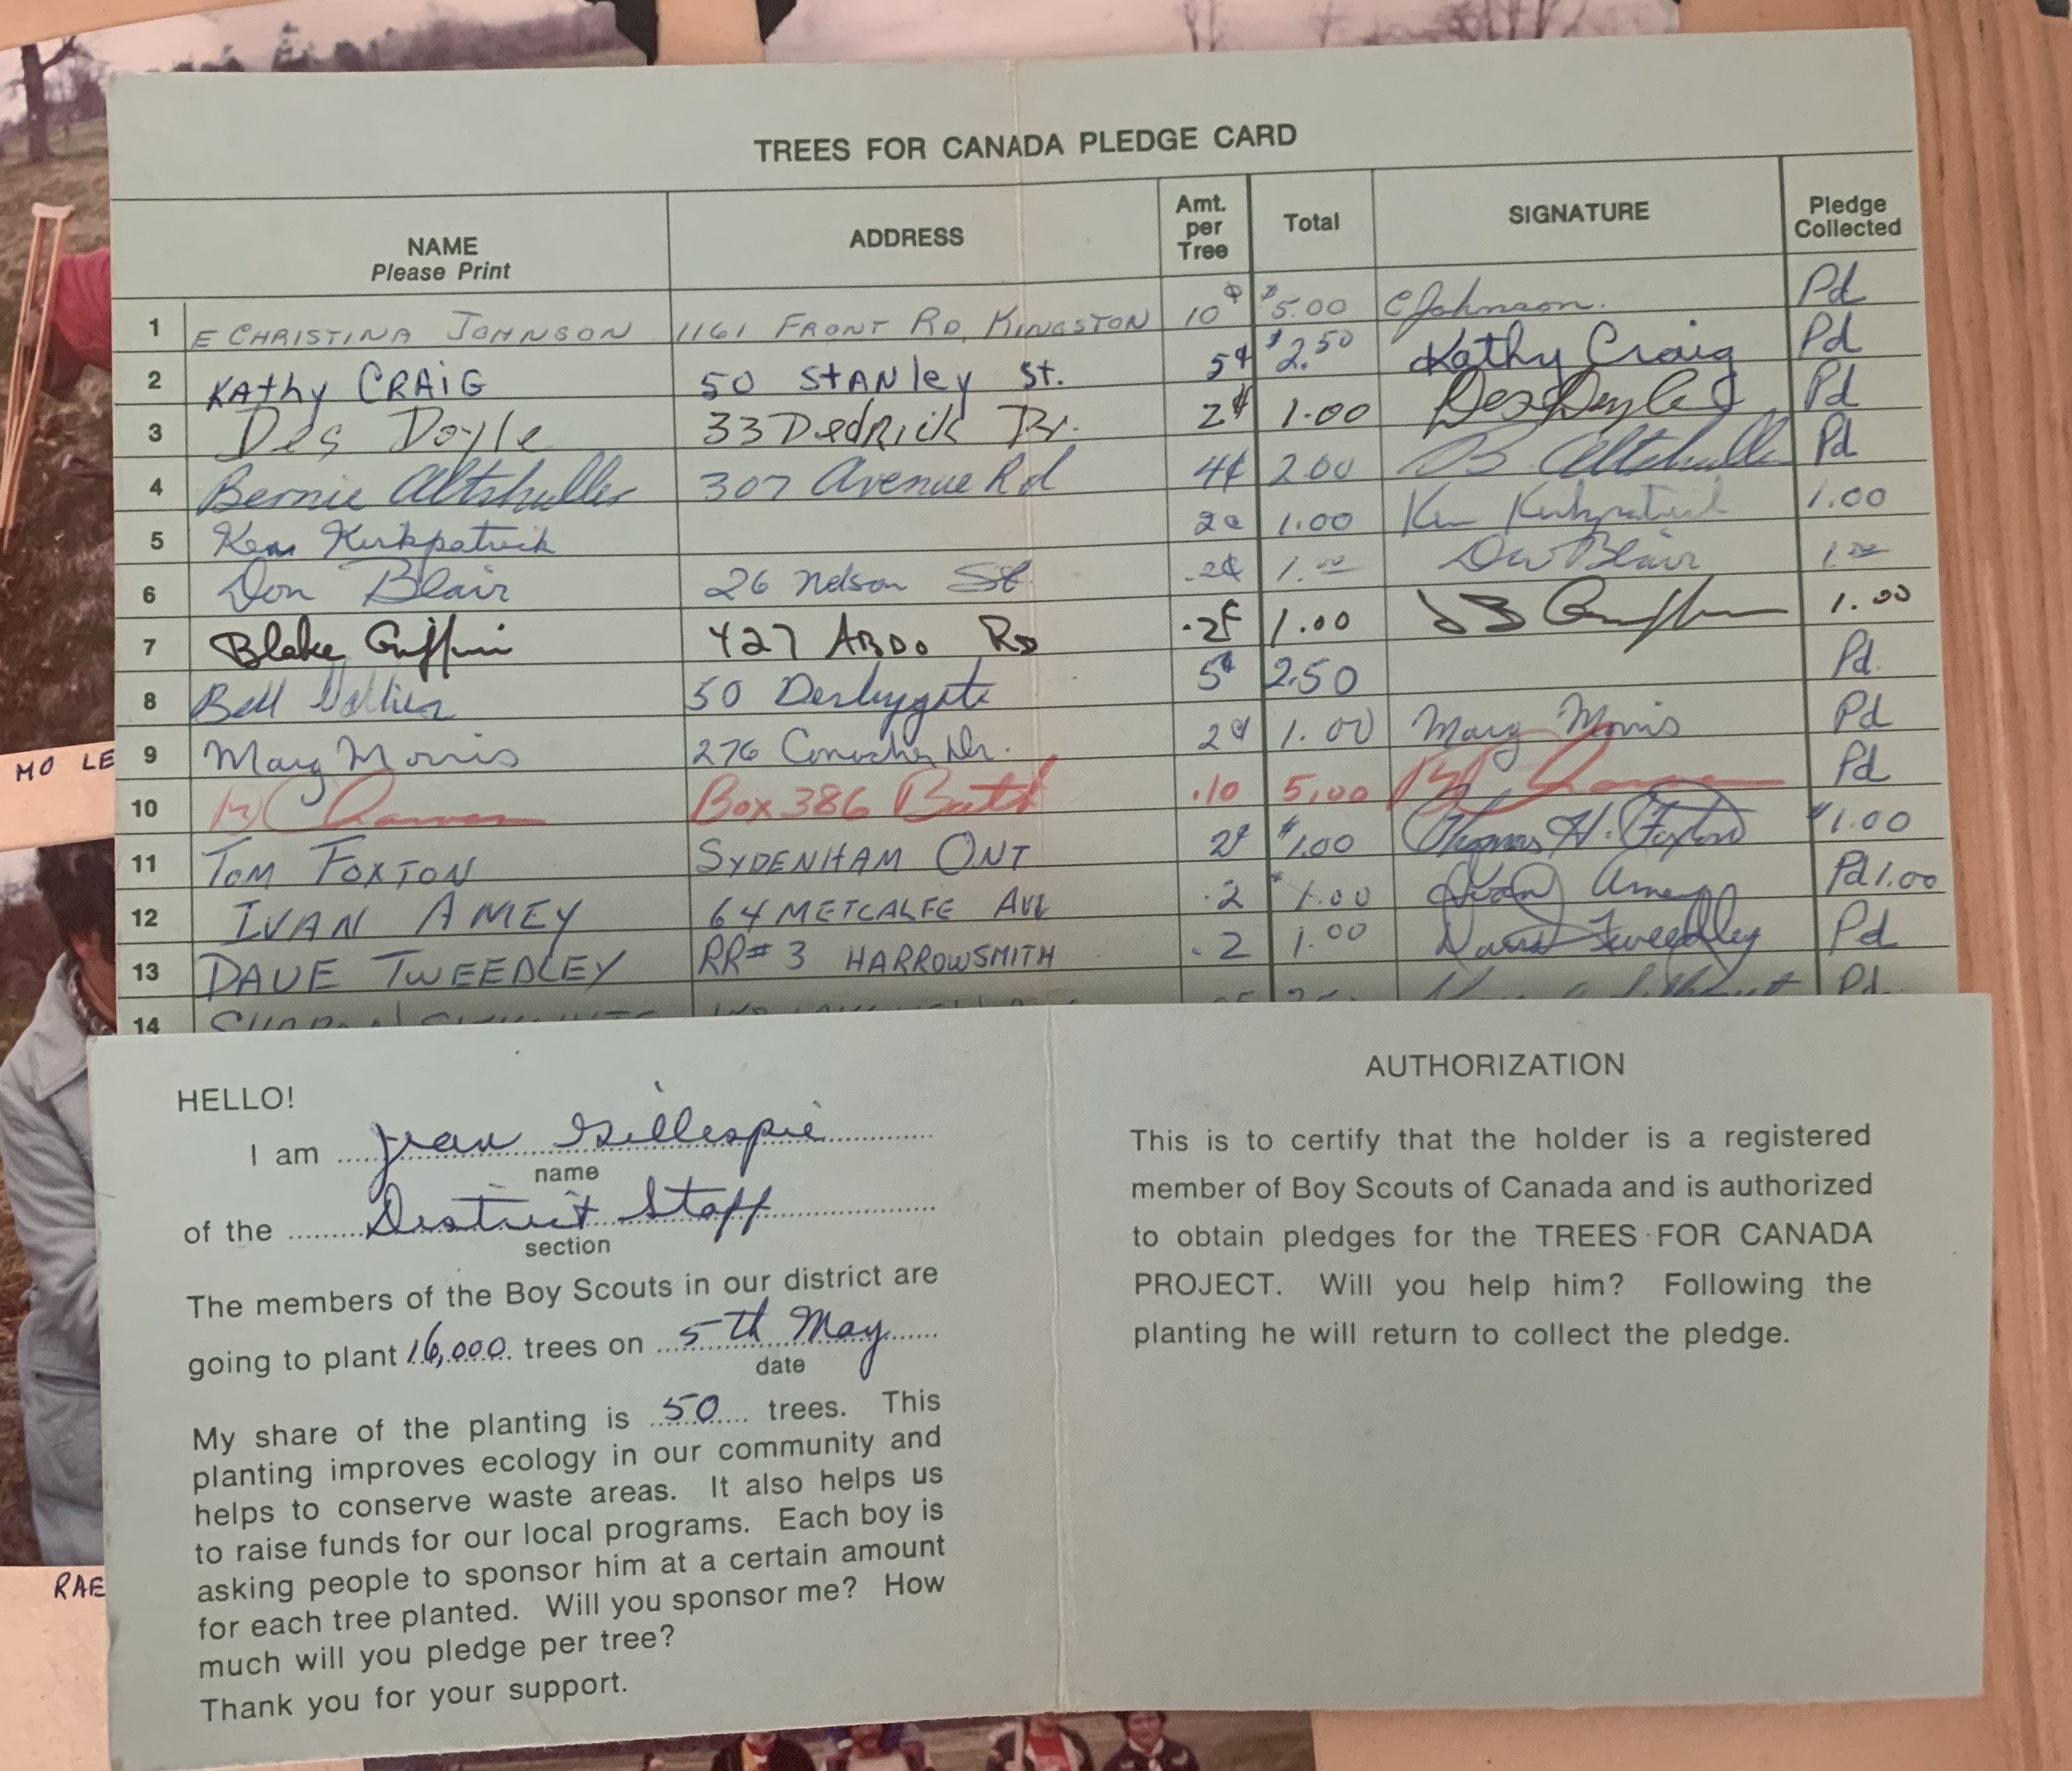 TREES FOR CANADA PLEDGE CARD
NAME Please Print ADDRESS Amt. per Tree Total SIGNATURE Pledge Collected
1 E CHRISTINA JOHNSON 1161 FRONT RD, KINGSTON 10¢ $5.00 CJohnson. Pd
2 KAthy CRAiG 50 StANley St. 5¢ $2.50 Kathy Craig Pd
3 Des Doyle 33 DedRick Dr. 2¢ 1.00 Des Doyle Pd
4 Bernie Altshuller 307 Avenue Rd 4¢ 2.00 B. Altshuller Pd
5 Ken Kirkpatrick 2¢ 1.00 Ken Kirkpatrick 1.00
6 Don Blair 26 Nelson St .2¢ 1.00 DW Blair 1.00
7 Blake Griffin 427 ABDO RD .2¢ 1.00 Griffin 1.00
8 50 Derbygate 5¢ 2.50 Pd.
9 Marg Morris 276 Conacher Dr. 2¢ 1.00 Marg Morris Pd
10 Box 386 Bath .10 5.00 Pd
11 TOM FOXTON SYDENHAM ONT 2¢ $1.00 Thomas H. Foxton $1.00
12 IVAN AMEY 64 METCALFE AVE .2 1.00 Ivan Amey Pd 1.00
13 DAVE TWEEDLEY RR# 3 HARROWSMITH .2 1.00 David Tweedley Pd
14 Pd
MO LE
RAE
HELLO!
I am Jean Gillespie
name
of the District Staff
section
The members of the Boy Scouts in our district are
going to plant 16,000 trees on 5th May
date
My share of the planting is 50 trees. This
planting improves ecology in our community and
helps to conserve waste areas. It also helps us
to raise funds for our local programs. Each boy is
asking people to sponsor him at a certain amount
for each tree planted. Will you sponsor me? How
much will you pledge per tree?
Thank you for your support.
AUTHORIZATION
This is to certify that the holder is a registered
member of Boy Scouts of Canada and is authorized
to obtain pledges for the TREES FOR CANADA
PROJECT. Will you help him? Following the
planting he will return to collect the pledge.